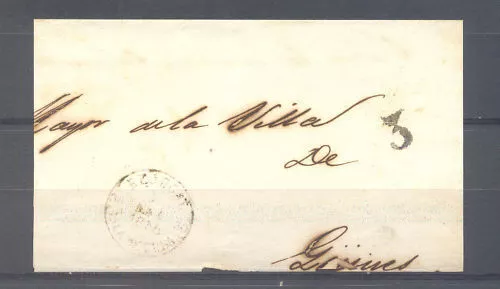 Mayor de la Villa
3
De
Güines